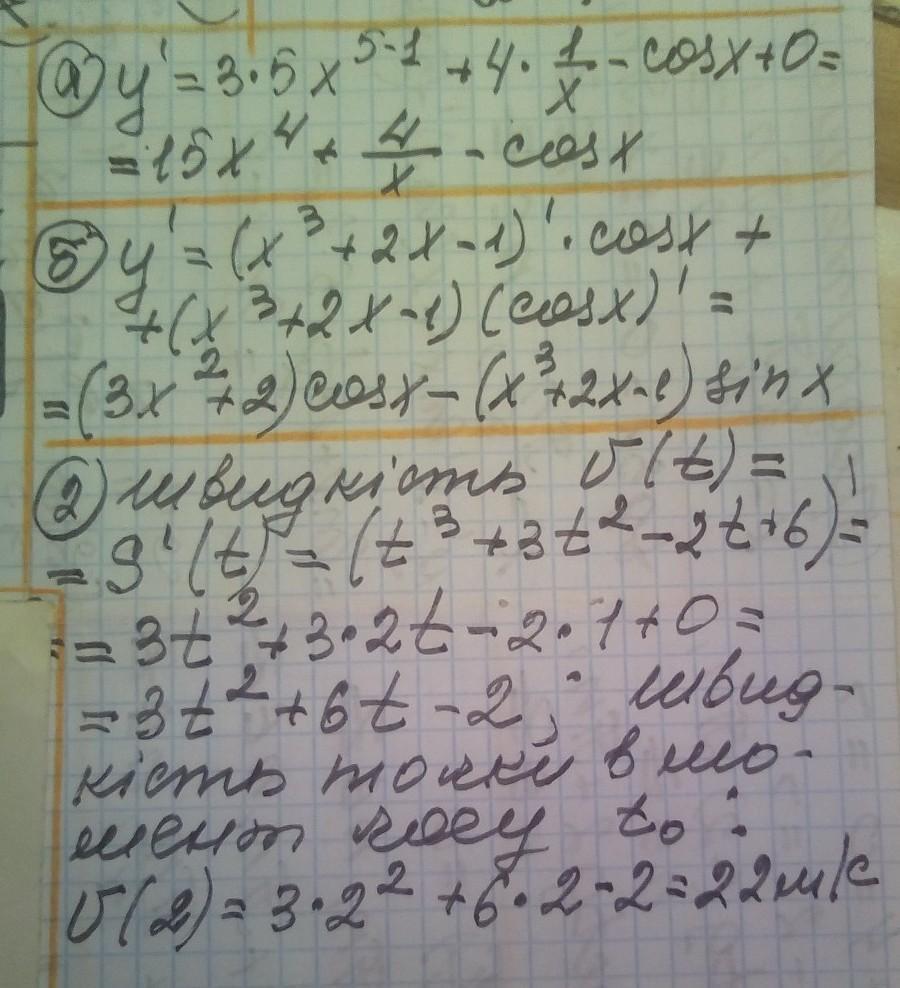 а) y' = 3·5x^{5-1} + 4·\frac{1}{x} - cosx + 0 =
= 15x^4 + \frac{4}{x} - cosx
б) y' = (x^3 + 2x - 1)' · cosx +
+ (x^3 + 2x - 1) (cosx)' =
= (3x^2 + 2) cosx - (x^3 + 2x - 1) sinx
2) швидкість v(t) =
= S'(t) = (t^3 + 3t^2 - 2t + 6)' =
= = 3t^2 + 3·2t - 2·1 + 0 =
= 3t^2 + 6t - 2; швид-
кість точки в мо-
мент часу t_0 :
v(2) = 3·2^2 + 6·2 - 2 = 22м/с